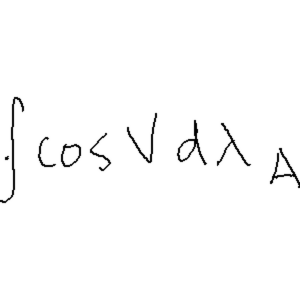 ∫ cos V dλ_A